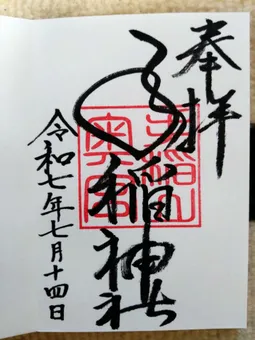 奉拝
手稲神社
手稲山
奥宮
令和七年七月十四日